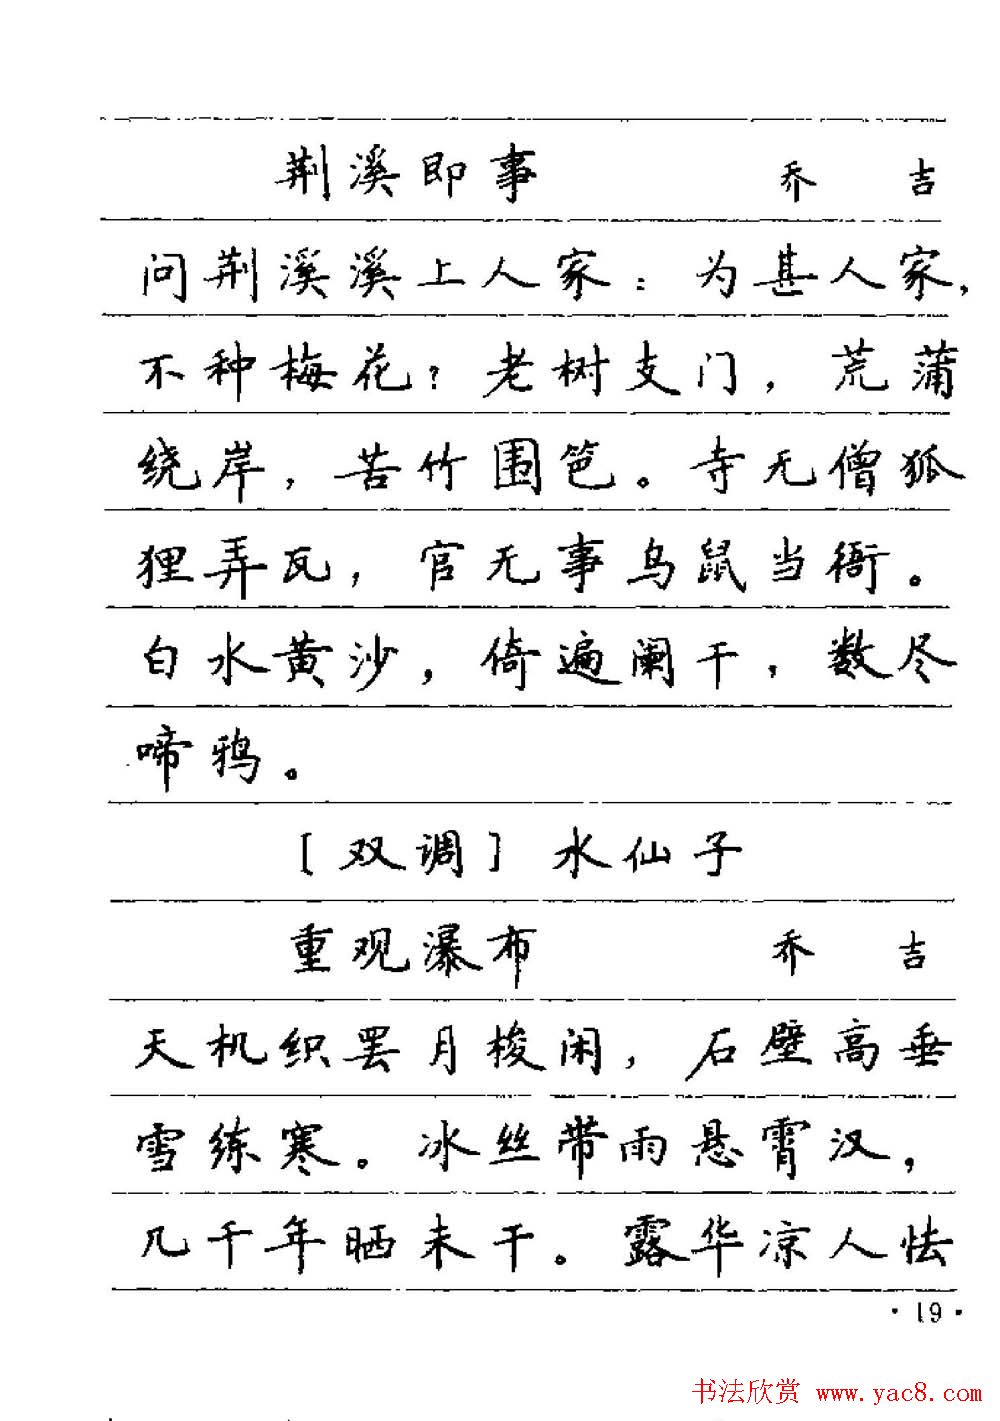 荆溪即事 乔吉
问荆溪溪上人家：为甚人家，
不种梅花？老树支门，荒蒲
绕岸，苦竹围笆。寺无僧狐
狸弄瓦，官无事乌鼠当衙。
白水黄沙，倚遍阑干，数尽
啼鸦。
［双调］水仙子
重观瀑布 乔吉
天机织罢月梭闲，石壁高垂
雪练寒。冰丝带雨悬霄汉，
几千年晒未干。露华凉人怯
·19·
书法欣赏 www.yac8.com